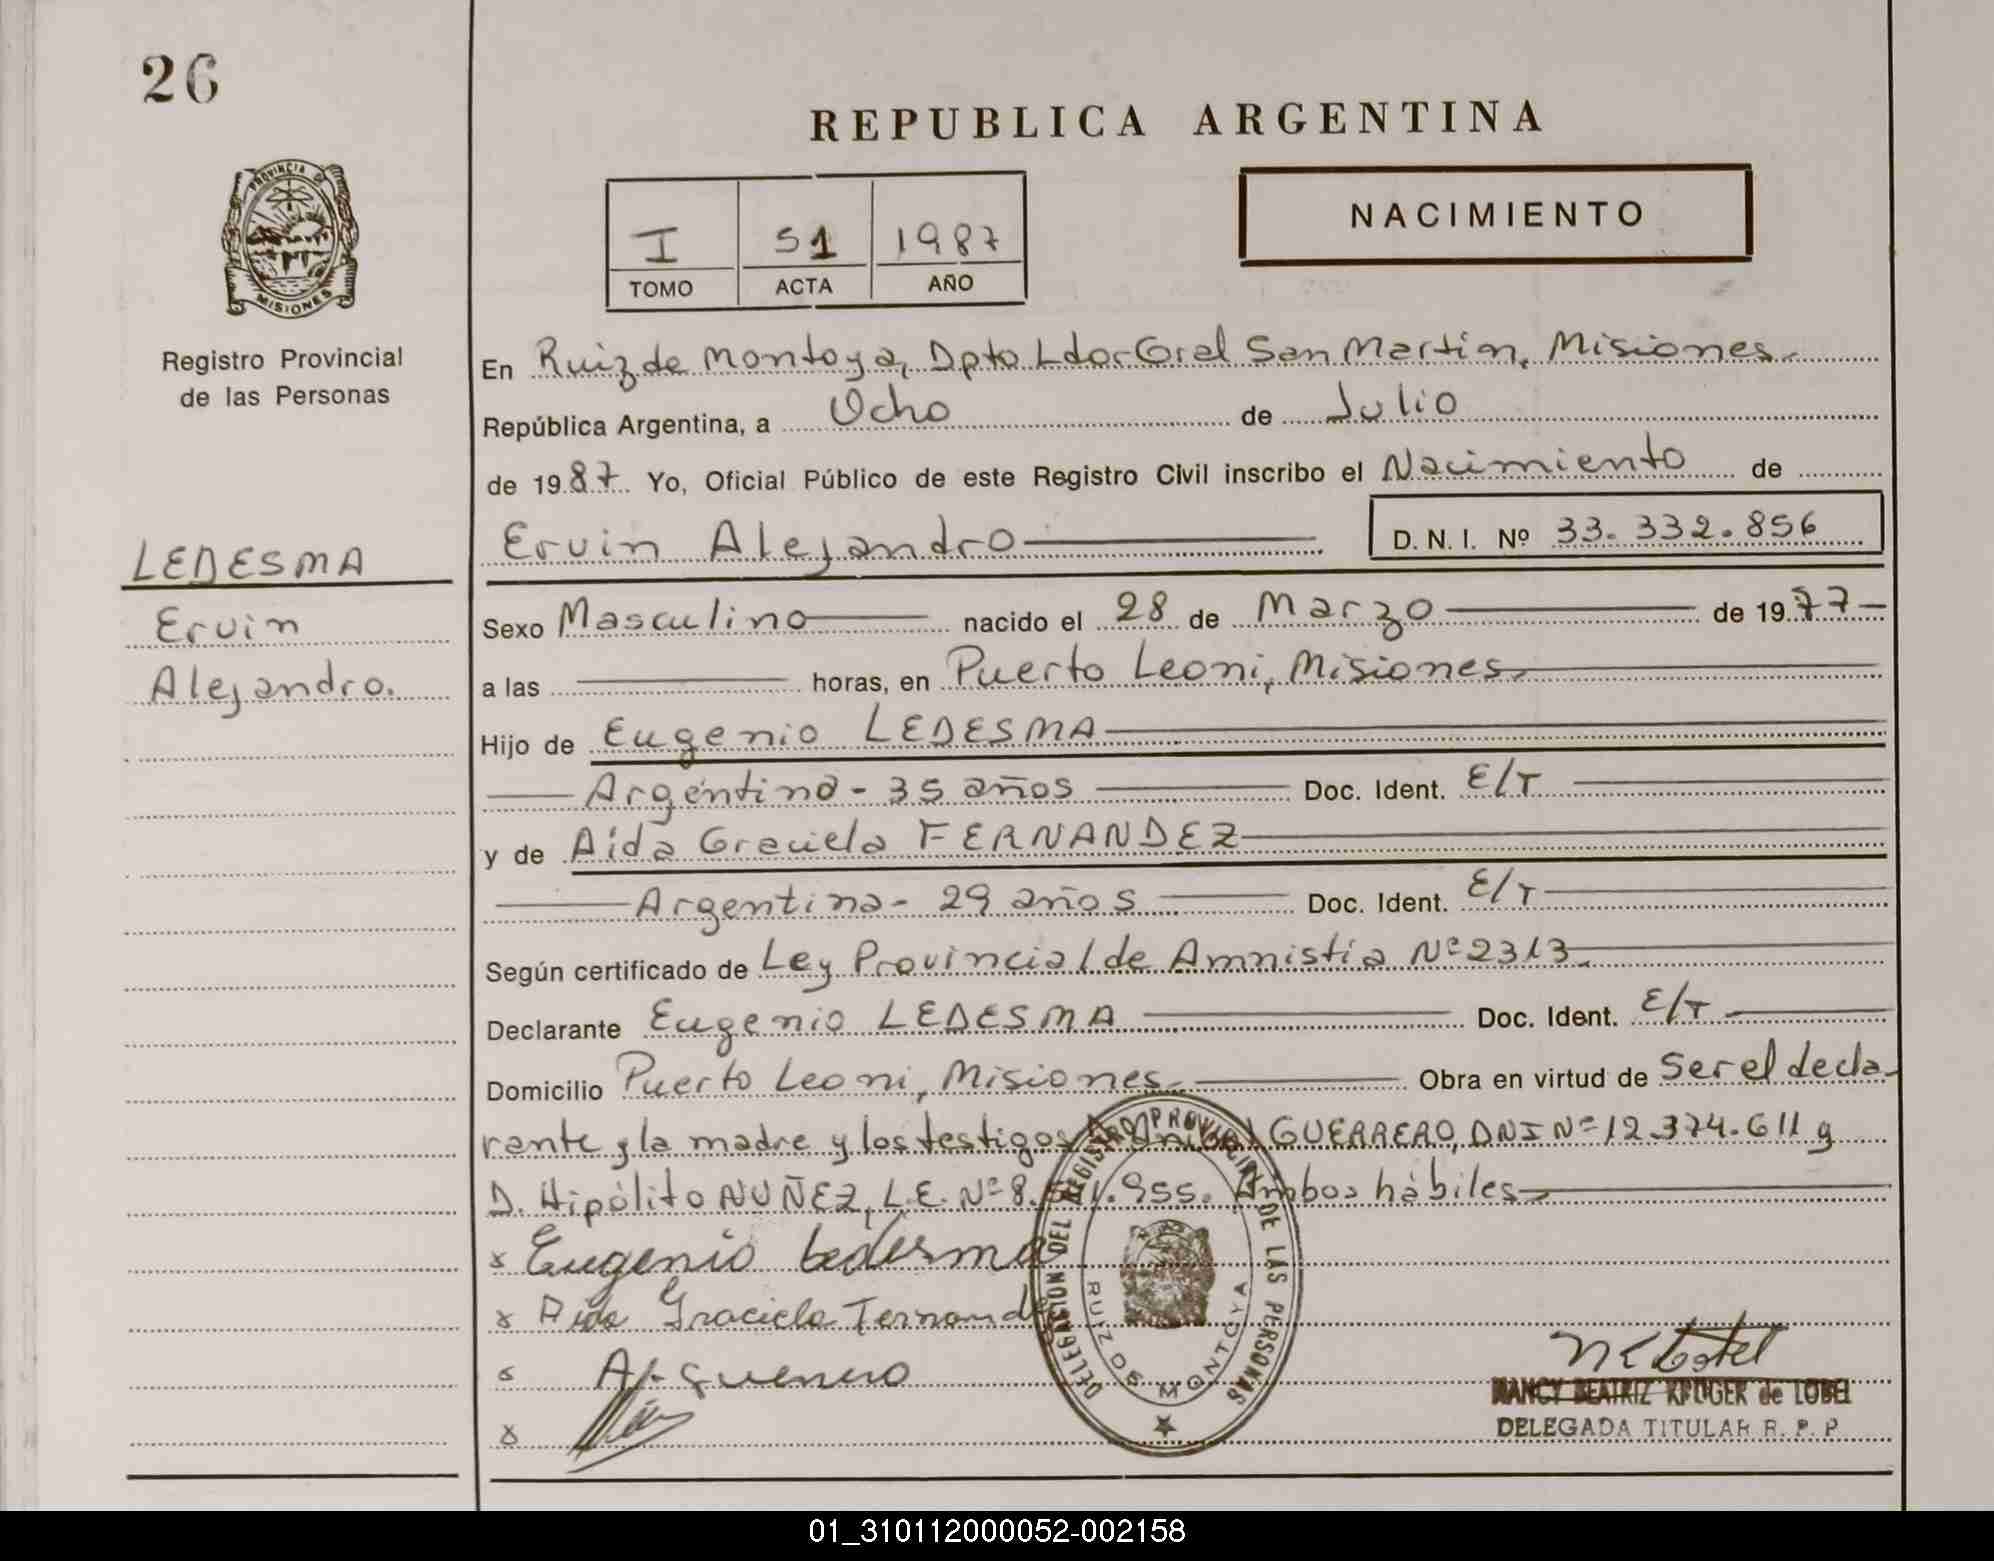 26
REPUBLICA ARGENTINA
PROVINCIA DE
MISIONES
I 51 1987
TOMO ACTA AÑO
NACIMIENTO
Registro Provincial
de las Personas
En Ruiz de Montoya, Dpto Ldor Gral San Martin, Misiones.
República Argentina, a Ocho de Julio
de 1987 Yo, Oficial Público de este Registro Civil inscribo el Nacimiento de
Ervin Alejandro D. N. I. Nº 33.332.856
LEDESMA
Ervin
Alejandro.
Sexo Masculino nacido el 28 de Marzo de 1977
a las horas, en Puerto Leoni, Misiones.
Hijo de Eugenio LEDESMA
Argentino - 35 años Doc. Ident. E/T
y de Aída Graciela FERNANDEZ
Argentina - 29 años Doc. Ident. E/T
Según certificado de Ley Provincial de Amnistía Nº 2313.
Declarante Eugenio LEDESMA Doc. Ident. E/T
Domicilio Puerto Leoni, Misiones. Obra en virtud de Ser el decla-
rante y la madre y los testigos GUERRERO, DNI Nº 12.374.611 y
D. Hipólito NUÑEZ, L.E. Nº 8. .955. Ambos hábiles
x Eugenio Ledesma
x Aida Graciela Fernand
A. Guerrero
x
DELEGACION DEL REGISTRO PROVINCIAL DE LAS PERSONAS
RUIZ DE MONTOYA
NANCY BEATRIZ KRUGER de LOBEL
DELEGADA TITULAR R. P. P.
01_310112000052-002158